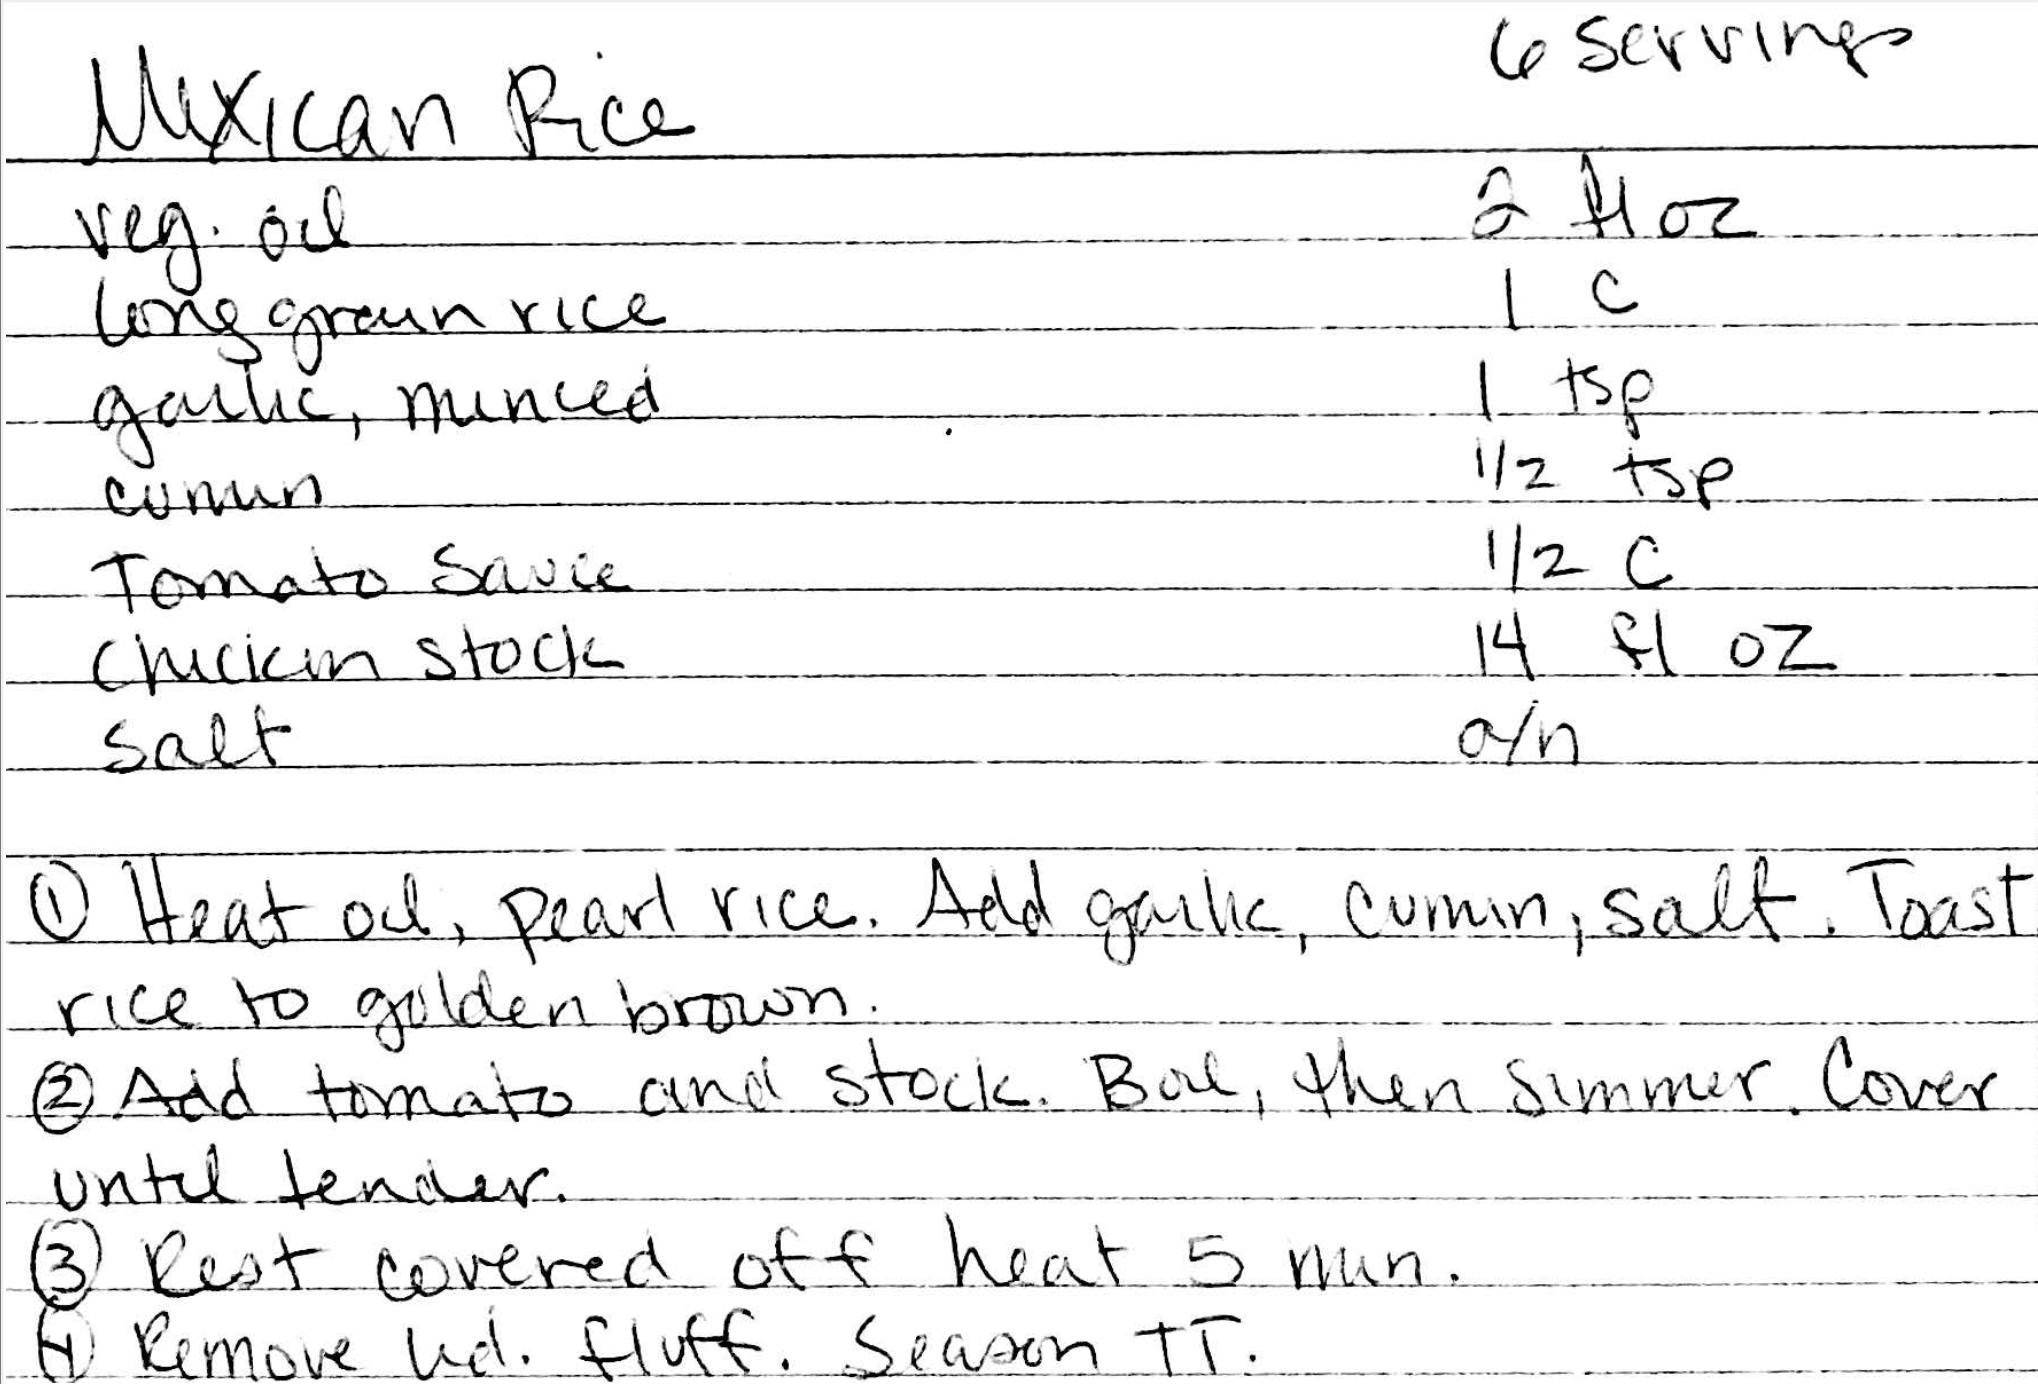 6 servings
Mexican Rice
veg. oil 2 fl oz
long grain rice 1 c
garlic, minced 1 tsp
cumin 1/2 tsp
Tomato Sauce 1/2 C
Chicken stock 14 fl oz
Salt a/n
① Heat oil, pearl rice. Add garlic, cumin, salt. Toast
rice to golden brown.
② Add tomato and stock. Boil, then simmer. Cover
until tender.
③ Rest covered off heat 5 min.
④ Remove lid. fluff. Season TT.